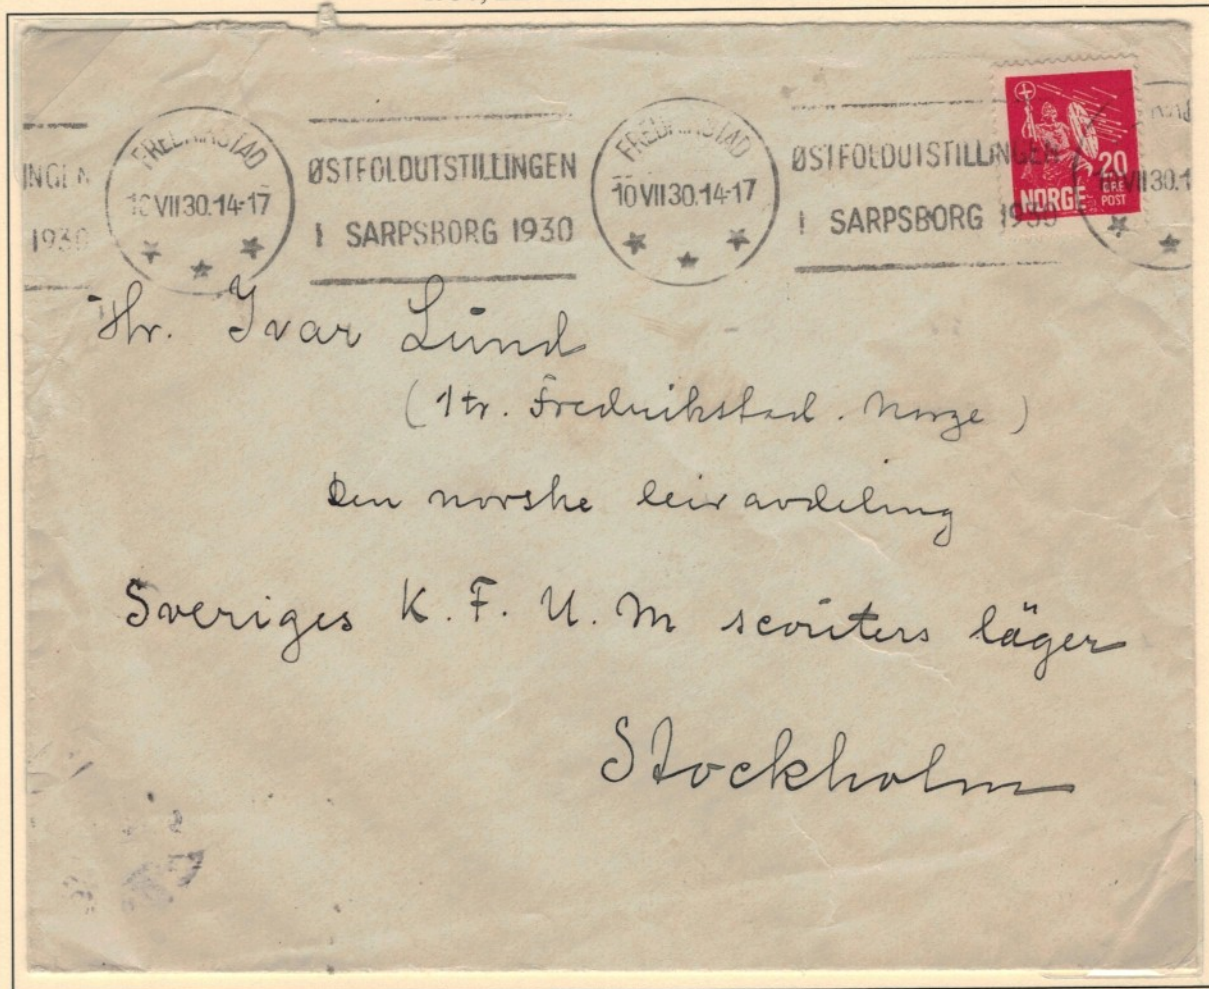 FREDRIKSTAD
10 VII 30.14-17
ØSTFOLDUTSTILLINGEN
I SARPSBORG 1930
FREDRIKSTAD
10 VII 30.14-17
ØSTFOLDUTSTILLINGEN
I SARPSBORG 1930
20
ØRE
NORGE POST
INGEN
1930
VII 30.1
Hr. Ivar Lund
(1 tr. Fredrikstad. Norge)
Den norske leiravdeling
Sveriges K. F. U. M scouters läger
Stockholm